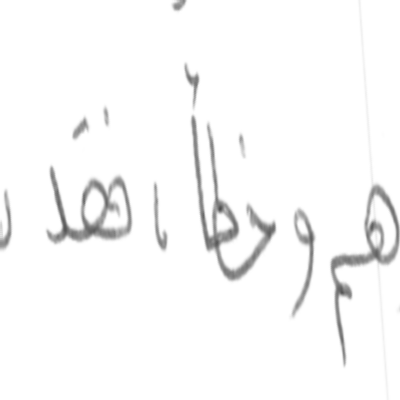 هم وخطأ، فقد